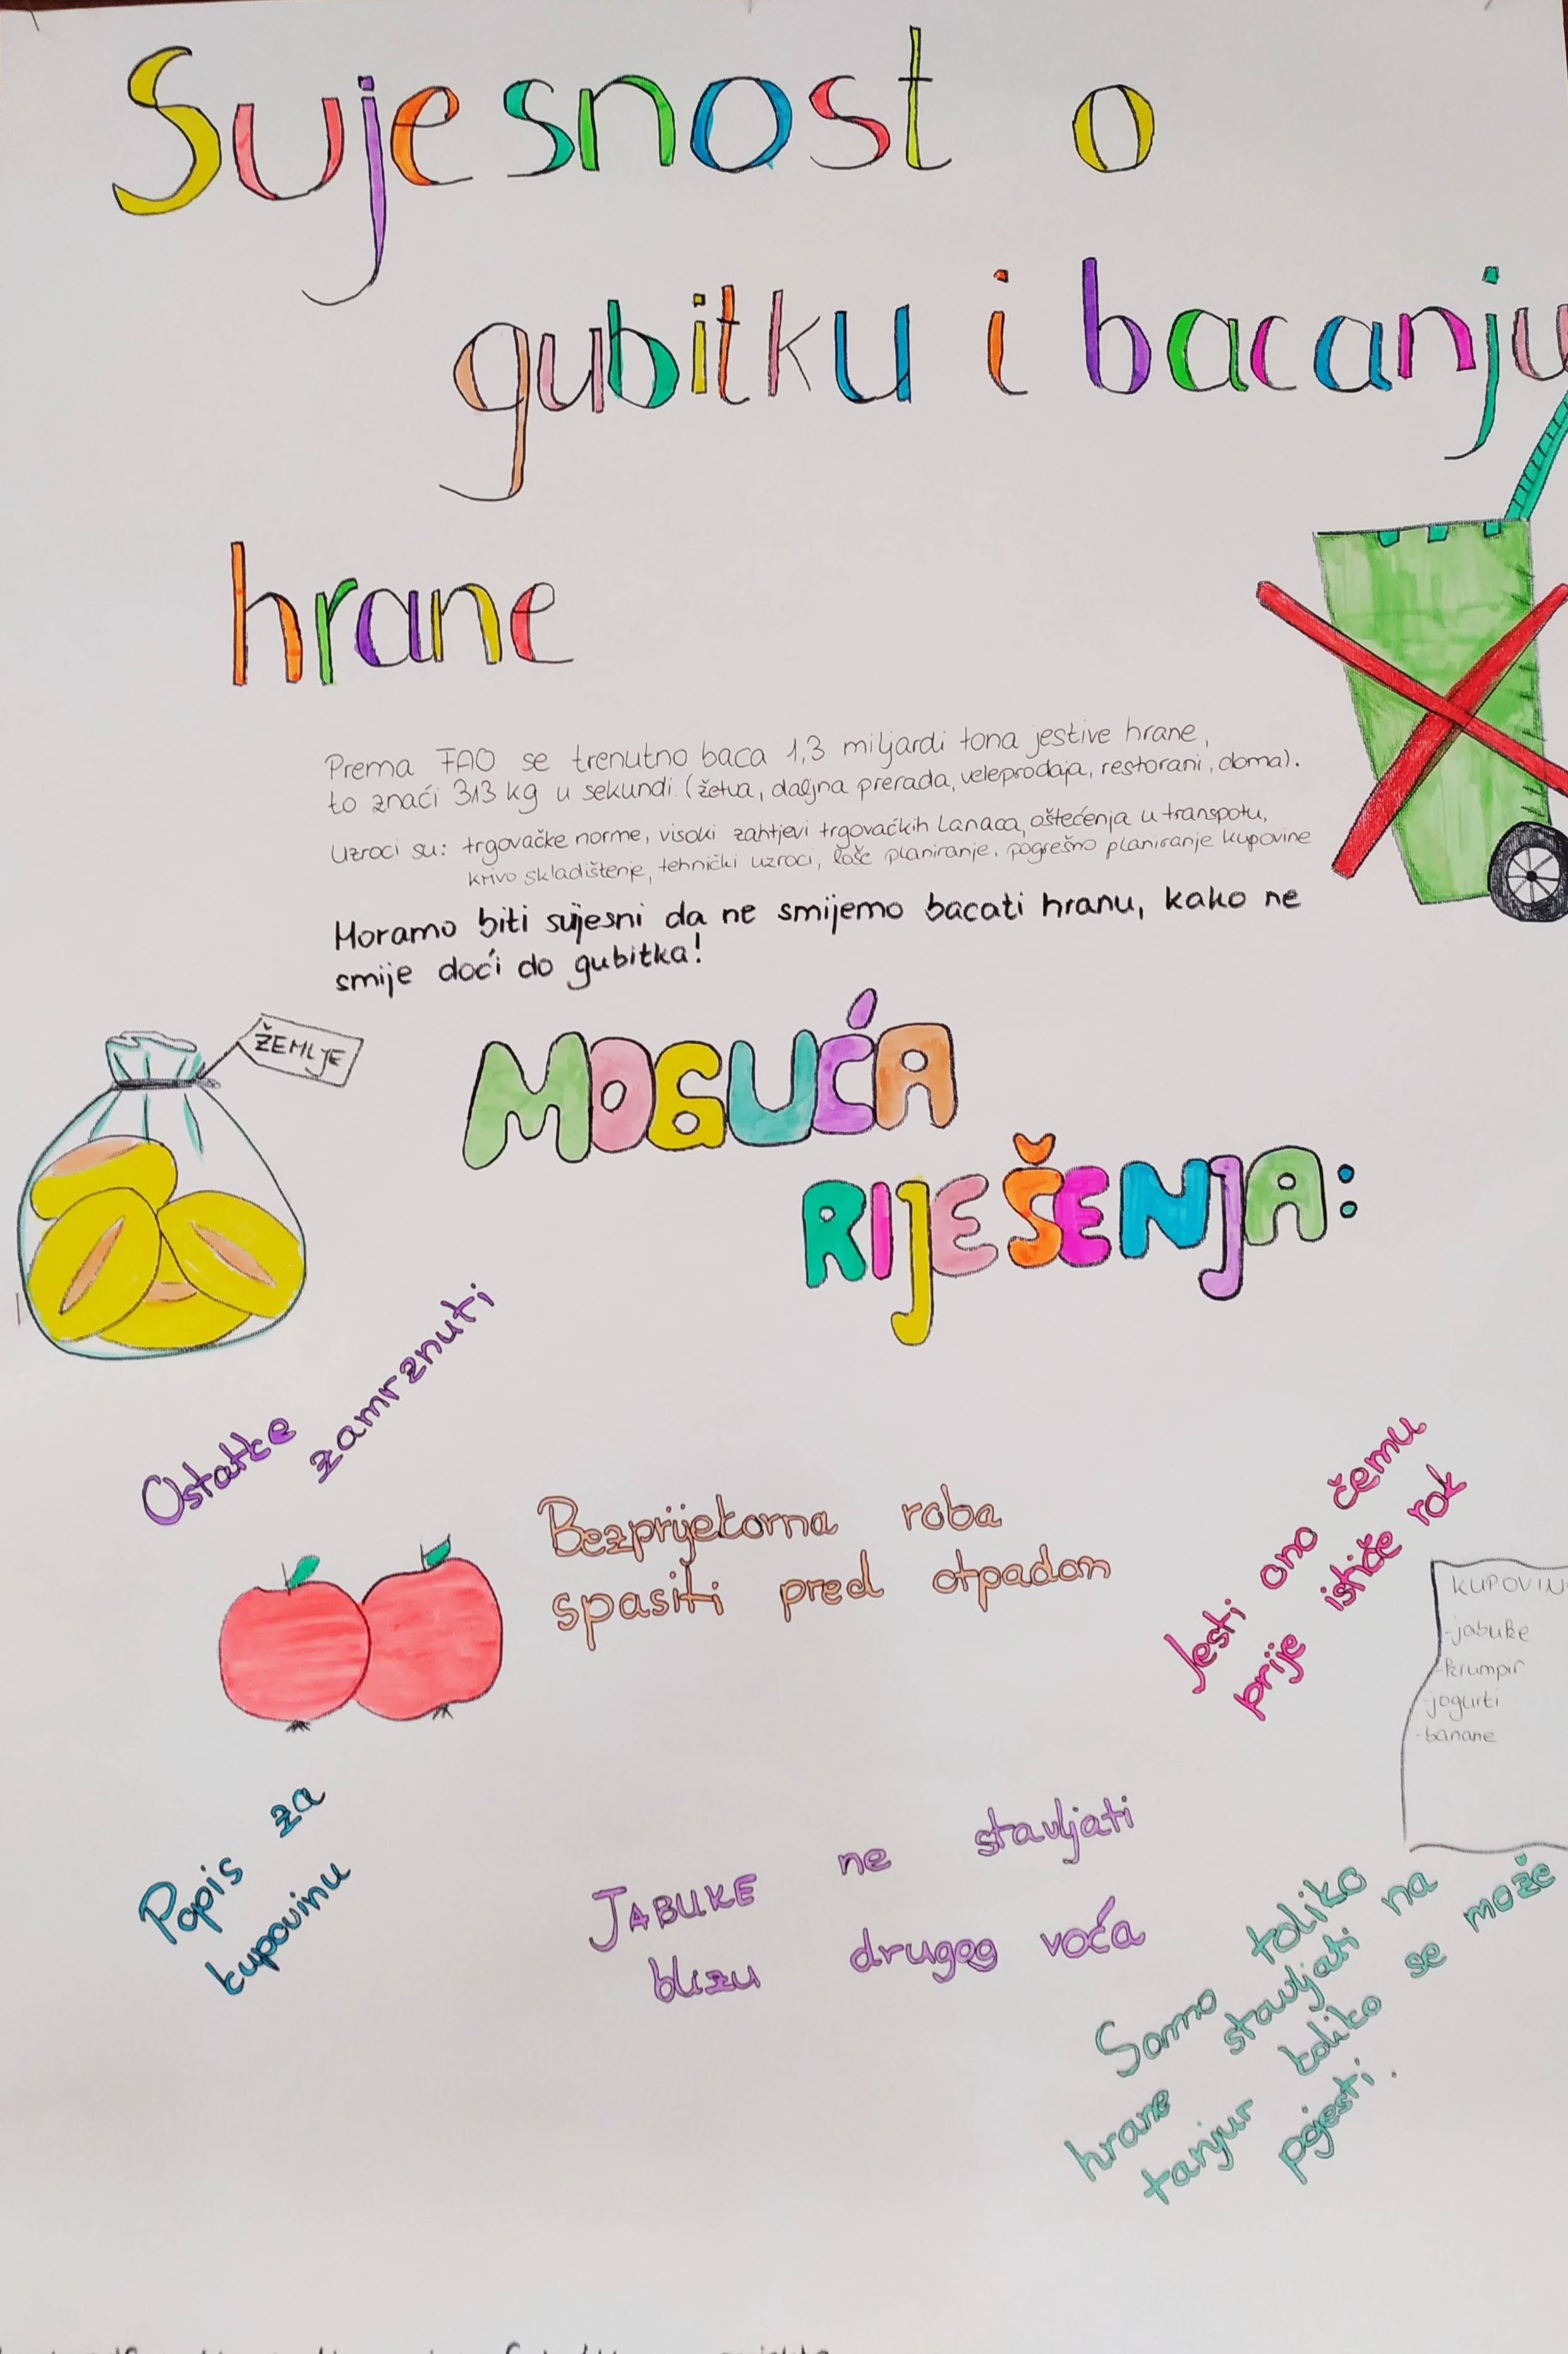 Svjesnost o
gubitku i bacanju
hrane
Prema FAO se trenutno baca 1,3 miljardi tona jestive hrane,
to znaći 313 kg u sekundi. (žetva, daljna prerada, veleprodaja, restorani, doma).
Uzroci su: trgovačke norme, visoki zahtjevi trgovačkih lanaca, oštećenja u transpotu,
krivo skladištenje, tehnički uzroci, loše planiranje, pogrešno planiranje kupovine
Moramo biti svjesni da ne smijemo bacati hranu, kako ne
smije doći do gubitka!
ŽEMLJE
MOGUĆA
RIJEŠENJA:
Ostatke
zamrznuti
Bezprijekorna roba
spasiti pred otpadom
Jesti ono čemu
prije ističe rok
KUPOVIN
-jabuke
-krumpir
-jogurti
-banane
Popis za
kupovinu
JABUKE ne stavljati
blizu drugog voća
Samo toliko
hrane stavljati na
tanjur koliko se može
pojesti.